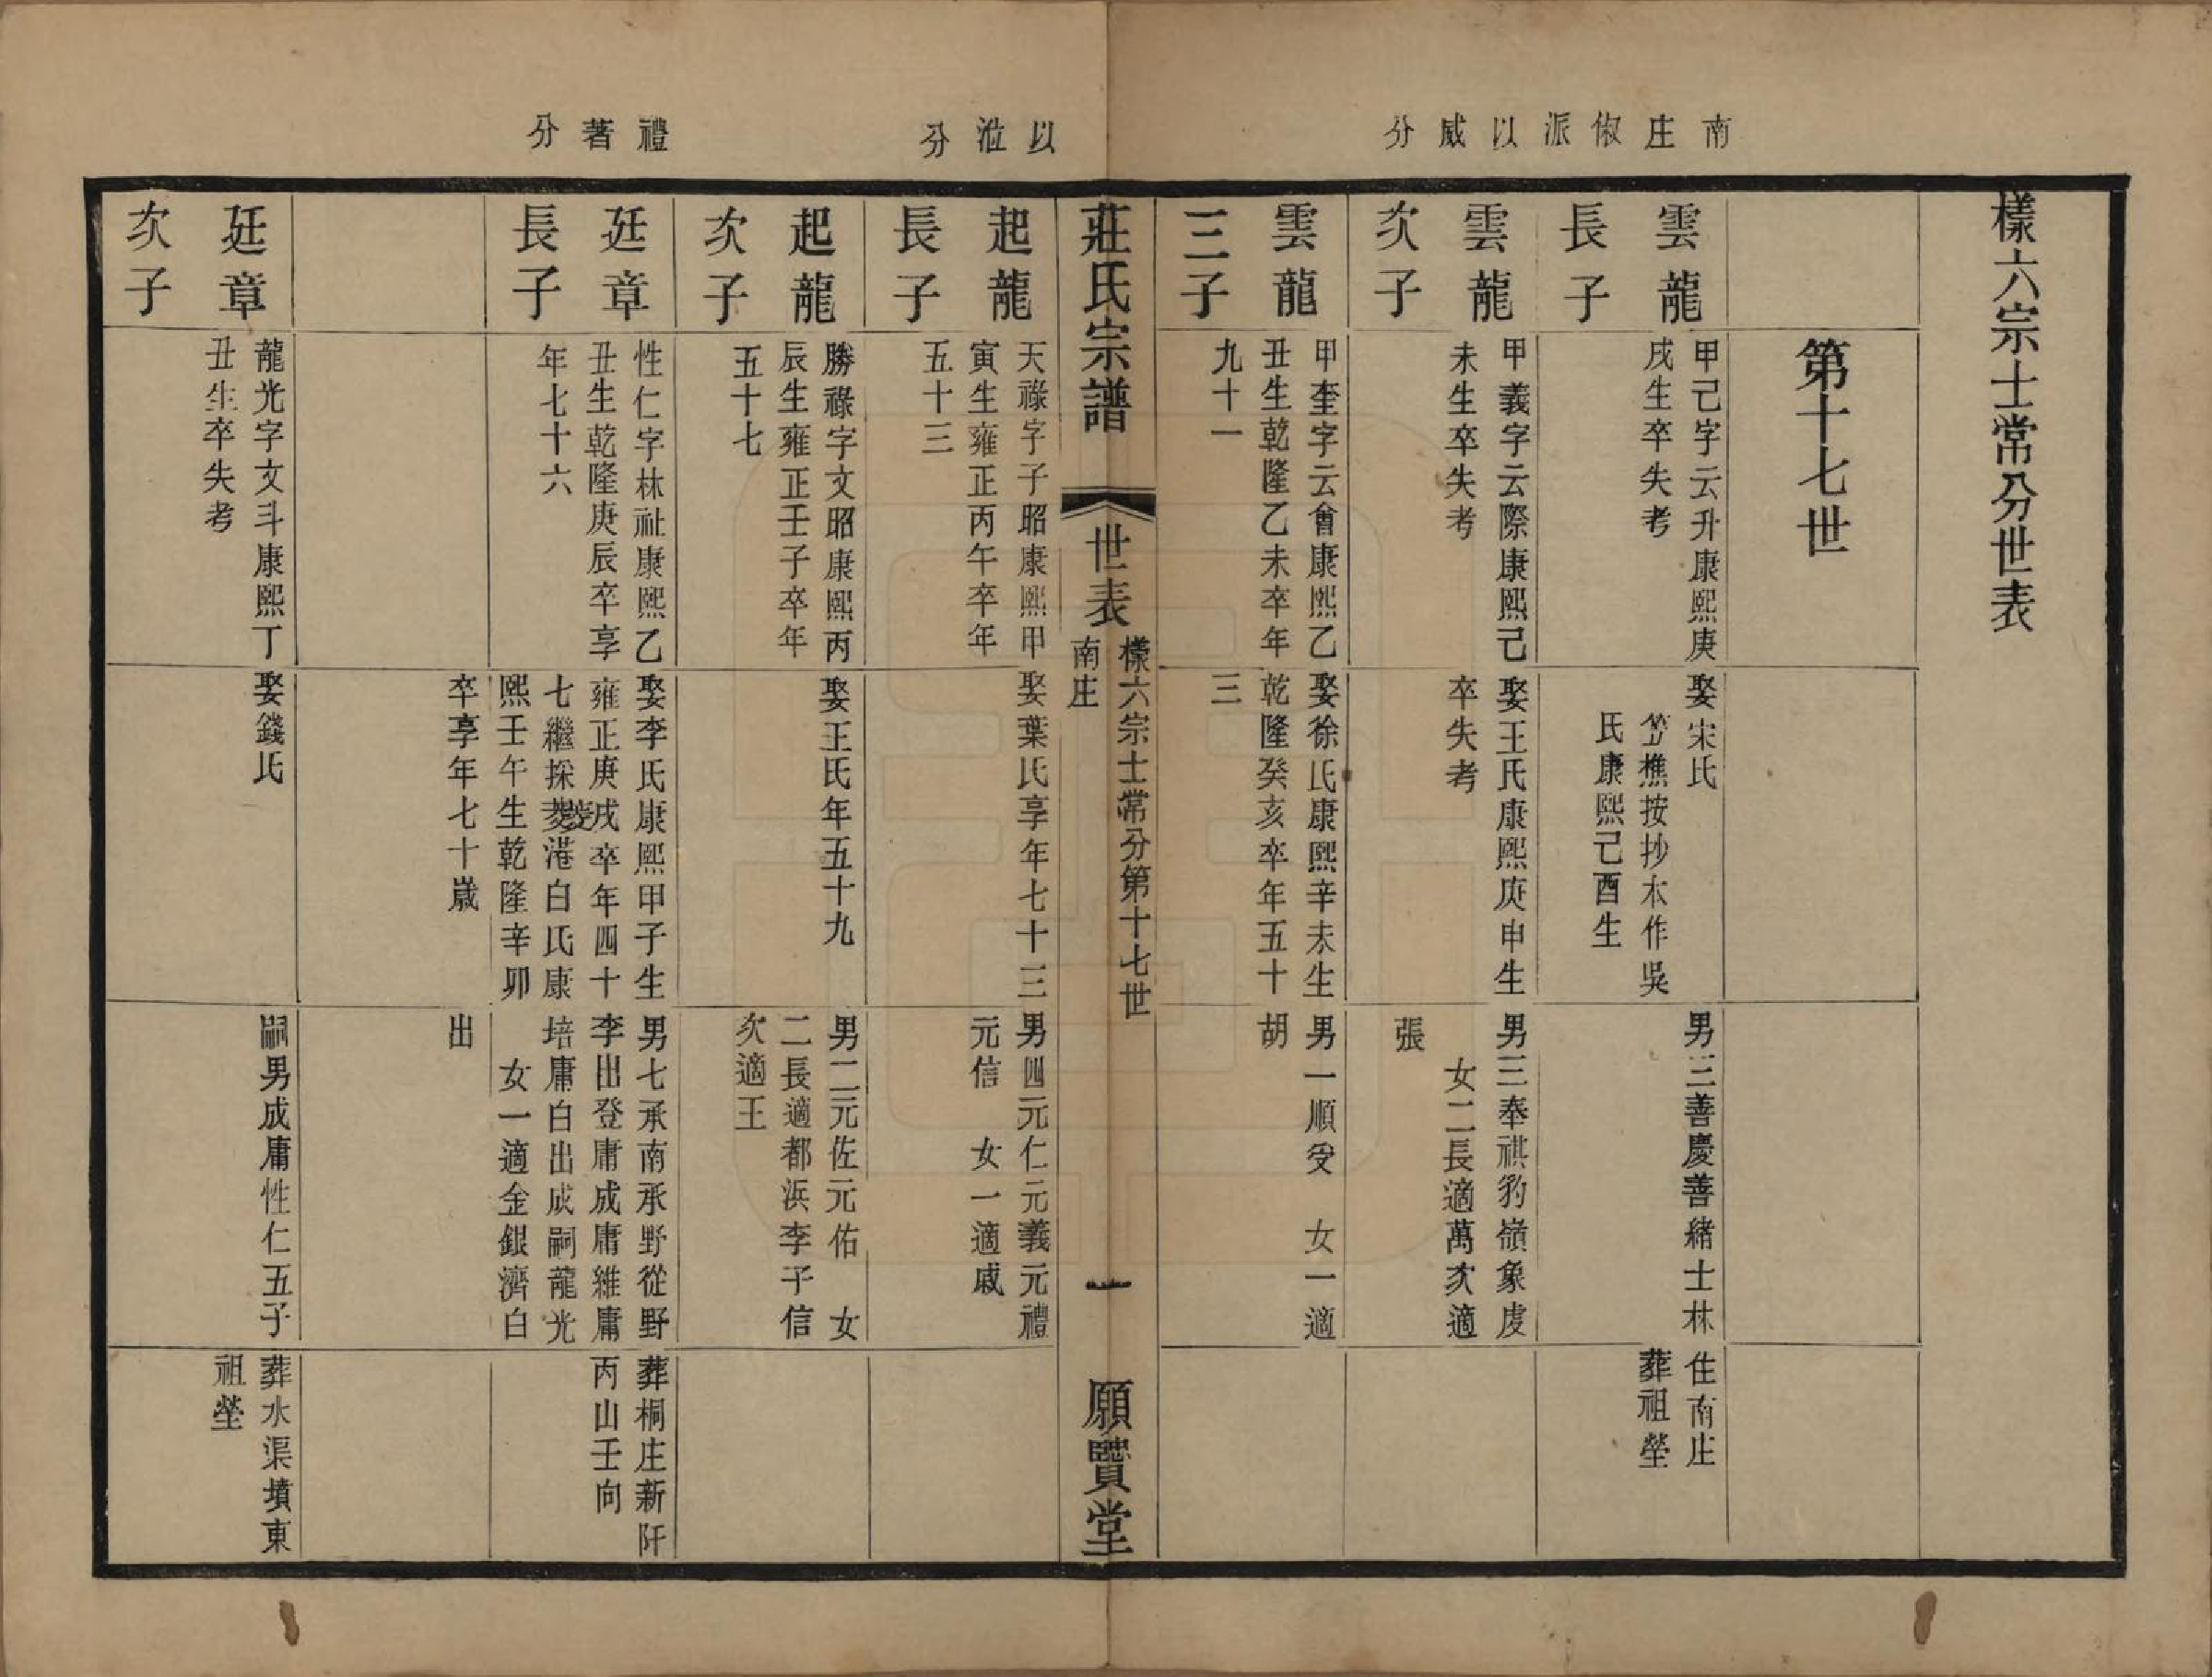 南庄俶派以威分
以涖分
禮著分
樣六宗士常分世表
第十七世
雲龍
長子
甲己字云升康熙庚
戌生卒失考
娶宋氏
笠樵按抄本作吳
氏康熙己酉生
男三善慶善緒士林
住南庄
葬祖塋
雲龍
次子
甲義字云際康熙己
未生卒失考
娶王氏康熙庚申生
卒失考
男三奉祺豹嶺象虔
女二長適萬次適
張
雲龍
三子
甲奎字云會康熙乙
丑生乾隆乙未卒年
九十一
娶徐氏康熙辛未生
乾隆癸亥卒年五十
三
男一順受 女一適
胡
莊氏宗譜
世表
樣六宗士常分第十七世
南庄
一
願賢堂
起龍
長子
天祿字子昭康熙甲
寅生雍正丙午卒年
五十三
娶葉氏享年七十三
男四元仁元義元禮
元信 女一適戚
起龍
次子
勝祿字文昭康熙丙
辰生雍正壬子卒年
五十七
娶王氏年五十九
男二元佐元佑 女
二長適都浜李子信
次適王
廷章
長子
性仁字林祉康熙乙
丑生乾隆庚辰卒享
年七十六
娶李氏康熙甲子生
雍正庚戌卒年四十
七繼採菱港白氏康
熙壬午生乾隆辛卯
卒享年七十歲
男七承南承野從野
李出登庸成庸維庸
培庸白出成嗣龍光
女一適金銀濟白
出
葬桐庄新阡
丙山壬向
廷章
次子
龍光字文斗康熙丁
丑生卒失考
娶錢氏
嗣男成庸性仁五子
葬水渠墳東
祖塋